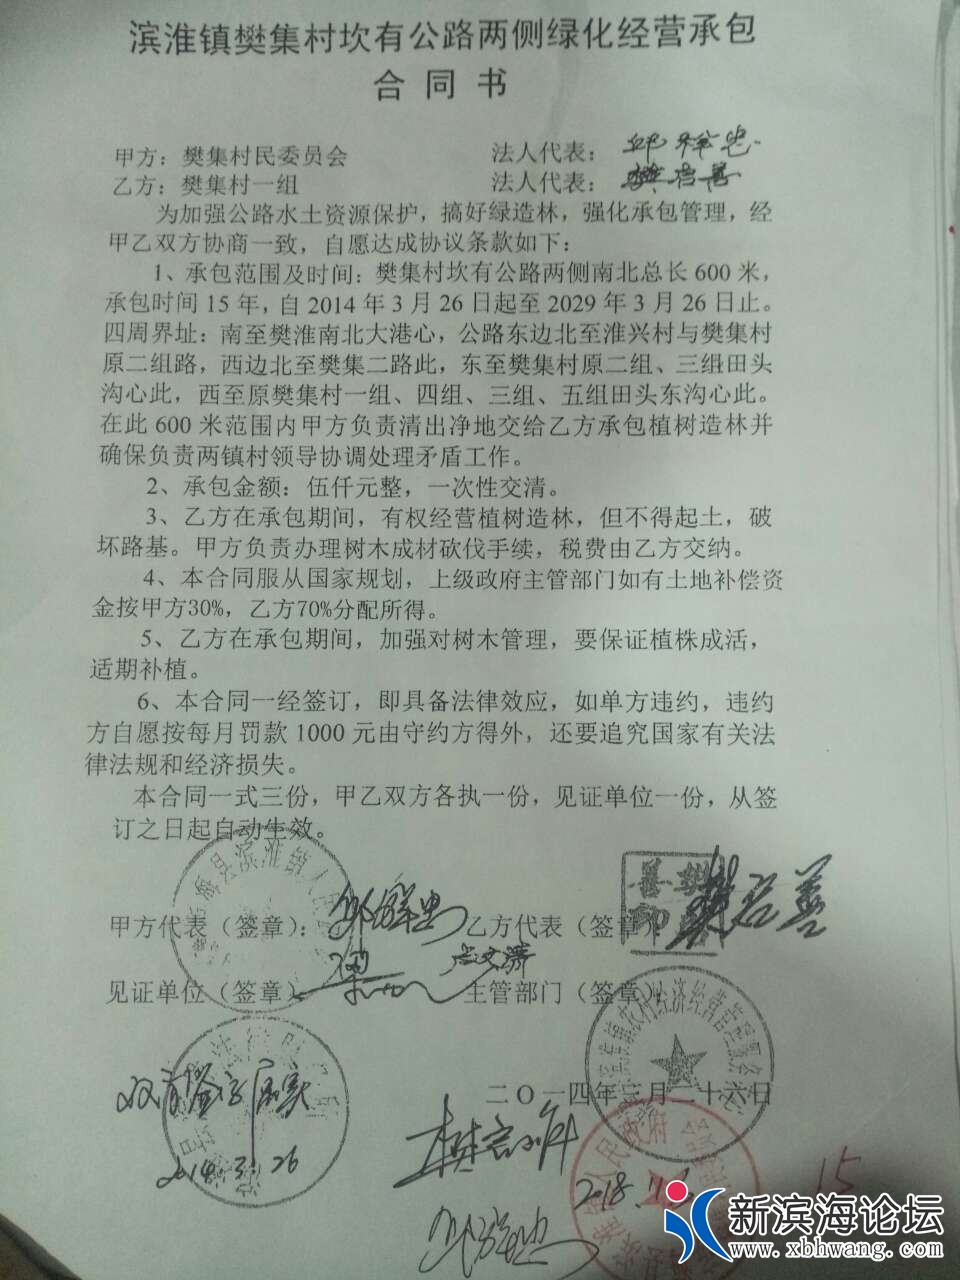 滨淮镇樊集村坎有公路两侧绿化经营承包
合同书
甲方：樊集村民委员会 法人代表：
乙方：樊集村一组 法人代表：樊启善
为加强公路水土资源保护，搞好绿造林，强化承包管理，经
甲乙双方协商一致，自愿达成协议条款如下：
1、承包范围及时间：樊集村坎有公路两侧南北总长600米，
承包时间15年，自2014年3月26日起至2029年3月26日止。
四周界址：南至樊淮南北大港心，公路东边北至淮兴村与樊集村
原二组路，西边北至樊集二路此，东至樊集村原二组、三组田头
沟心此，西至原樊集村一组、四组、三组、五组田头东沟心此。
在此600米范围内甲方负责清出净地交给乙方承包植树造林并
确保负责两镇村领导协调处理矛盾工作。
2、承包金额：伍仟元整，一次性交清。
3、乙方在承包期间，有权经营植树造林，但不得起土，破
坏路基。甲方负责办理树木成材砍伐手续，税费由乙方交纳。
4、本合同服从国家规划，上级政府主管部门如有土地补偿资
金按甲方30%，乙方70%分配所得。
5、乙方在承包期间，加强对树木管理，要保证植株成活，
适期补植。
6、本合同一经签订，即具备法律效应，如单方违约，违约
方自愿按每月罚款1000元由守约方得外，还要追究国家有关法
律法规和经济损失。
本合同一式三份，甲乙双方各执一份，见证单位一份，从签
订之日起自动生效。
甲方代表（签章）： 乙方代表（签章）：樊启善
见证单位（签章） 主管部门（签章）：
二〇一四年三月二十六日
双方签字属实
2014.3.26
2018.
15
新滨海论坛
www.xbhwang.com